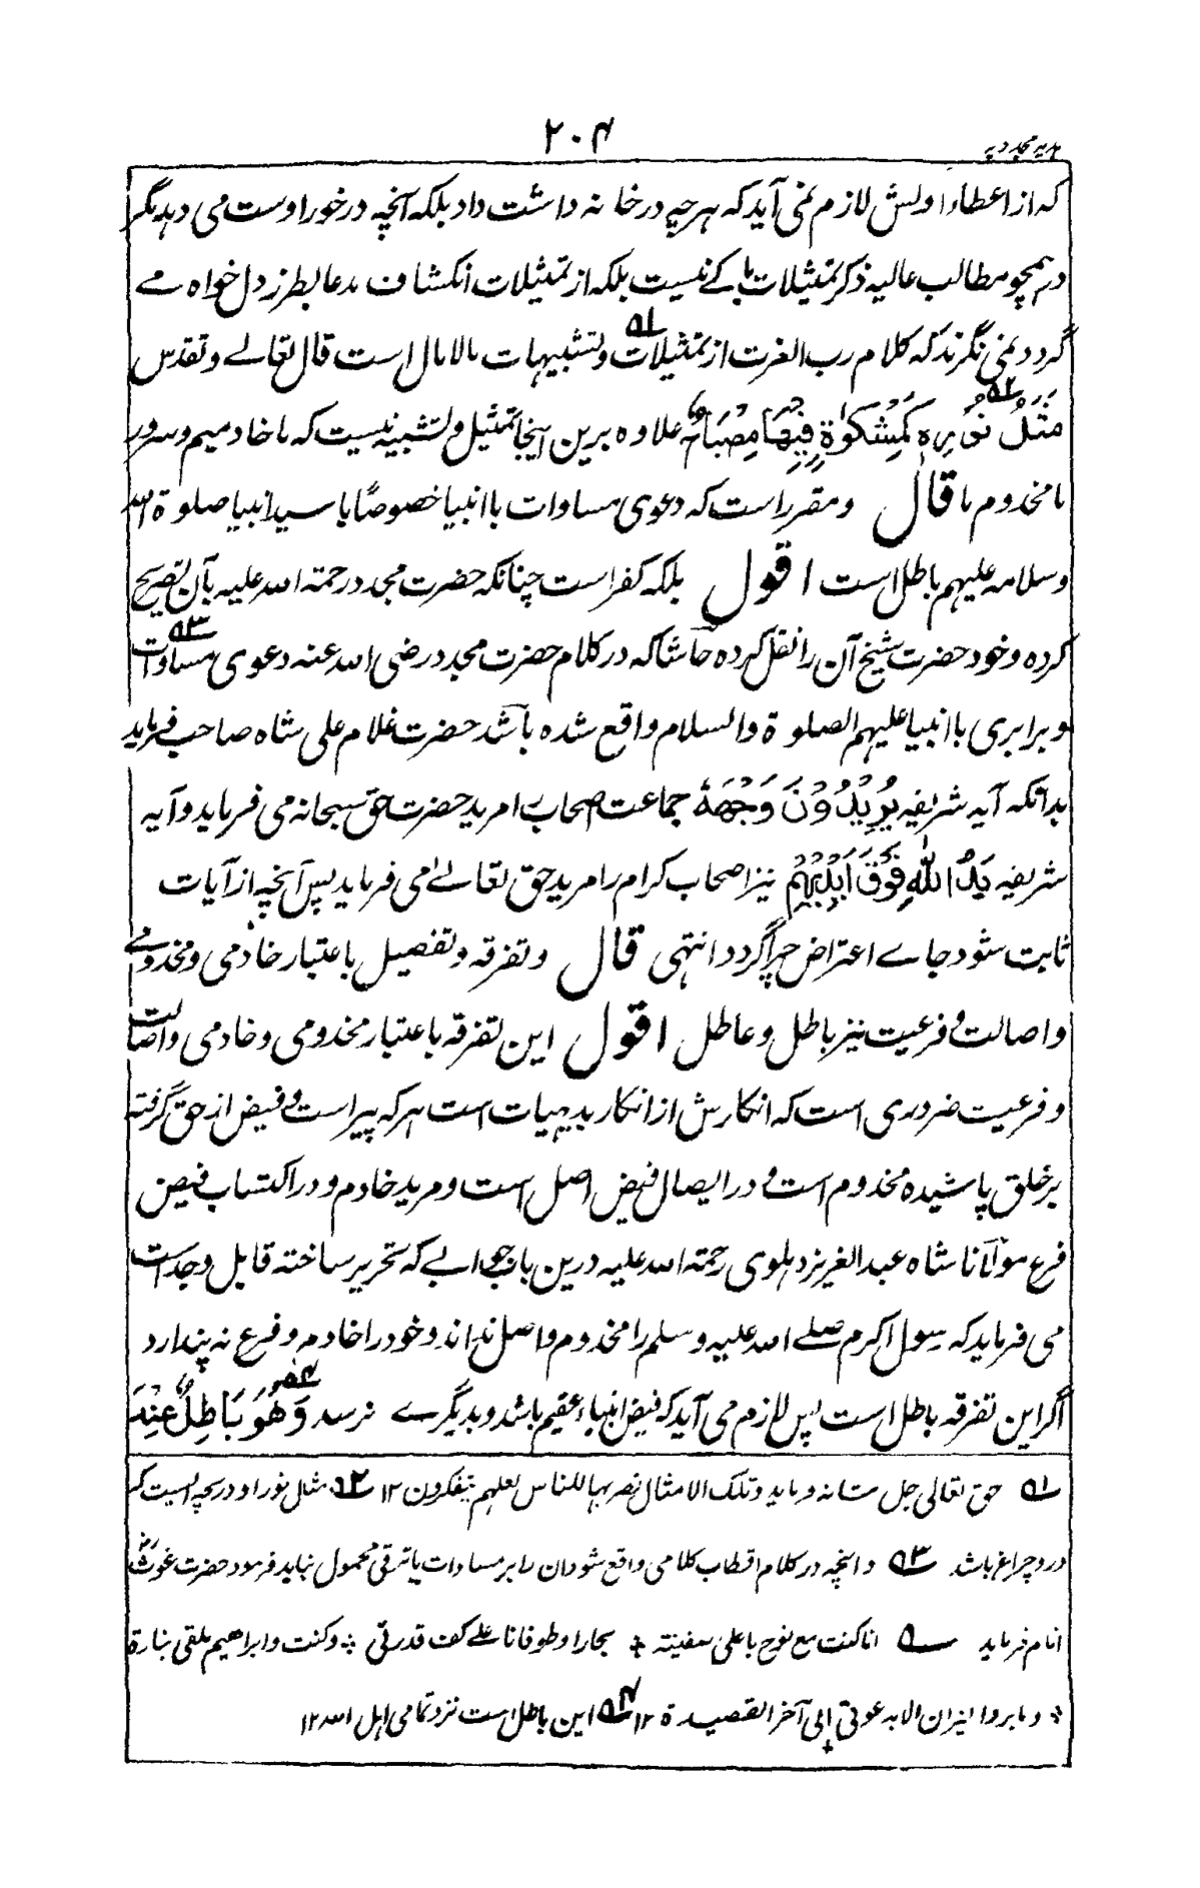 ۲۰۴
ہدیہ مجددیہ
کہ از اعطاء اولش لازم نمی آید کہ ہر چہ در خانہ داشت داد بلکہ آنچہ در خور اوست می دہد نگر
در ہمچو مطالب عالیہ ذکر تمثیلات باکے نیست بلکہ از تمثیلات انکشاف مدعا بطرز دل خواہ مے
گردد نمی نگرند کہ کلام رب العزت از تمثیلات ۱ و تشبیہات مالامال است قال تعالے و تقدس
مَثَلُ نُوْرِہٖ ۲ کَمِشْکٰوةٍ فِیْهَا مِصْبَاحٌ علاوہ برین اینجا تمثیل و تشبیہ نیست کہ ما خادمیم و سرور
ما مخدوم ما قال و مقرر است کہ دعوی مساوات با انبیا خصوصًا با سید انبیا صلوة اللہ
وسلامہ علیہم باطل است اقول بلکہ کفر است چنانکہ حضرت مجدد رحمتہ اللہ علیہ بآن تصریح
کردہ و خود حضرت شیخ آن را نقل کردہ حاشا کہ در کلام حضرت مجدد رضی اللہ عنہ دعوی مساوات ۳
و برابری با انبیا علیہم الصلوة والسلام واقع شدہ باشد حضرت غلام علی شاہ صاحب فرماید
بدانکہ آیہ شریفہ یُرِیْدُوْنَ وَجْهَهٗ جماعت اصحاب را مرید حضرت حق سبحانہ می فرماید و آیہ
شریفہ یَدُ اللّٰهِ فَوْقَ اَیْدِیْهِمْ نیز اصحاب کرام را مرید حق تعالےٰ می فرماید پس آنچہ از آیات
ثابت شود جاے اعتراض چرا گردد انتہی قال و تفرقہ و تفصیل باعتبار خادمی و مخدومے
و اصالت و فرعیت نیز باطل و عاطل اقول این تفرقہ باعتبار مخدومی و خادمی و اصالت
و فرعیت ضروری است کہ انکارش از انکار بدیہیات است ہر کہ پیر است و فیض از حق گرفتہ
بر خلق پاشیدہ مخدوم است و در ایصال فیض اصل است و مرید خادم و در اکتساب فیض
فرع مولانا شاہ عبد العزیز دہلوی رحمتہ اللہ علیہ درین باب جوابے کہ تحریر ساختہ قابل وجد است
می فرماید کہ رسول اکرم صلے اللہ علیہ وسلم را مخدوم و اصل نداند و خود را خادم و فرع نہ پندارد
اگر این تفرقہ باطل است پس لازم می آید کہ فیض انبیاء عقیم باشد و بدیگرے نرسد وَهُوَ ۴ بَاطِلٌ عِنْدَ
۱ حق تعالی جل شانہ فرماید و تلک الامثال نضربہا للناس لعلہم یتفکرون ۱۲ ۲ مثال نور او دریچہ ایست کہ
درو چراغ باشد ۳ و آنچہ در کلام اقطاب کلامی واقع شود آن را بر مساوات یا ترقی محمول نباید فرمود حضرت غوث
انام فرماید انا کنت مع نوح باعلی سفینتہ + بحارا و طوفانا علے کف قدرتی ؞ و کنت و ابراھیم ملقی بنارہ
؞ و ما برد النیران الا بدعوتی الی آخر القصیدة ۱۲ ۴ این باطل است نزد تمامی اہل اللہ ۱۲